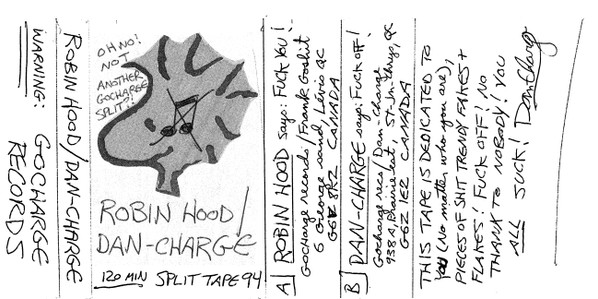 WARNING:
GOCHARGE
RECORDS
ROBIN HOOD/DAN-CHARGE
OH NO!
NOT
ANOTHER
GOCHARGE
SPLIT?!
ROBIN HOOD/
DAN-CHARGE
120 MIN SPLIT TAPE 94
A] ROBIN HOOD says: FUCK YOU!
Gocharge records/Frank Goshit
6 George sand, Lévis QC
8R2 CANADA
B] DAN-CHARGE says: FUCK OFF!
Gocharge recs/Dan charge
938 A, Prairie est, QC
G6Z 1E2 CANADA
THIS TAPE IS DEDICATED TO
YOU (NO matter who you are),
PIECES OF SHIT TRENDY FAKES +
FLAKES! FUCK OFF! NO
THANX TO NOBODY! YOU
ALL SUCK!